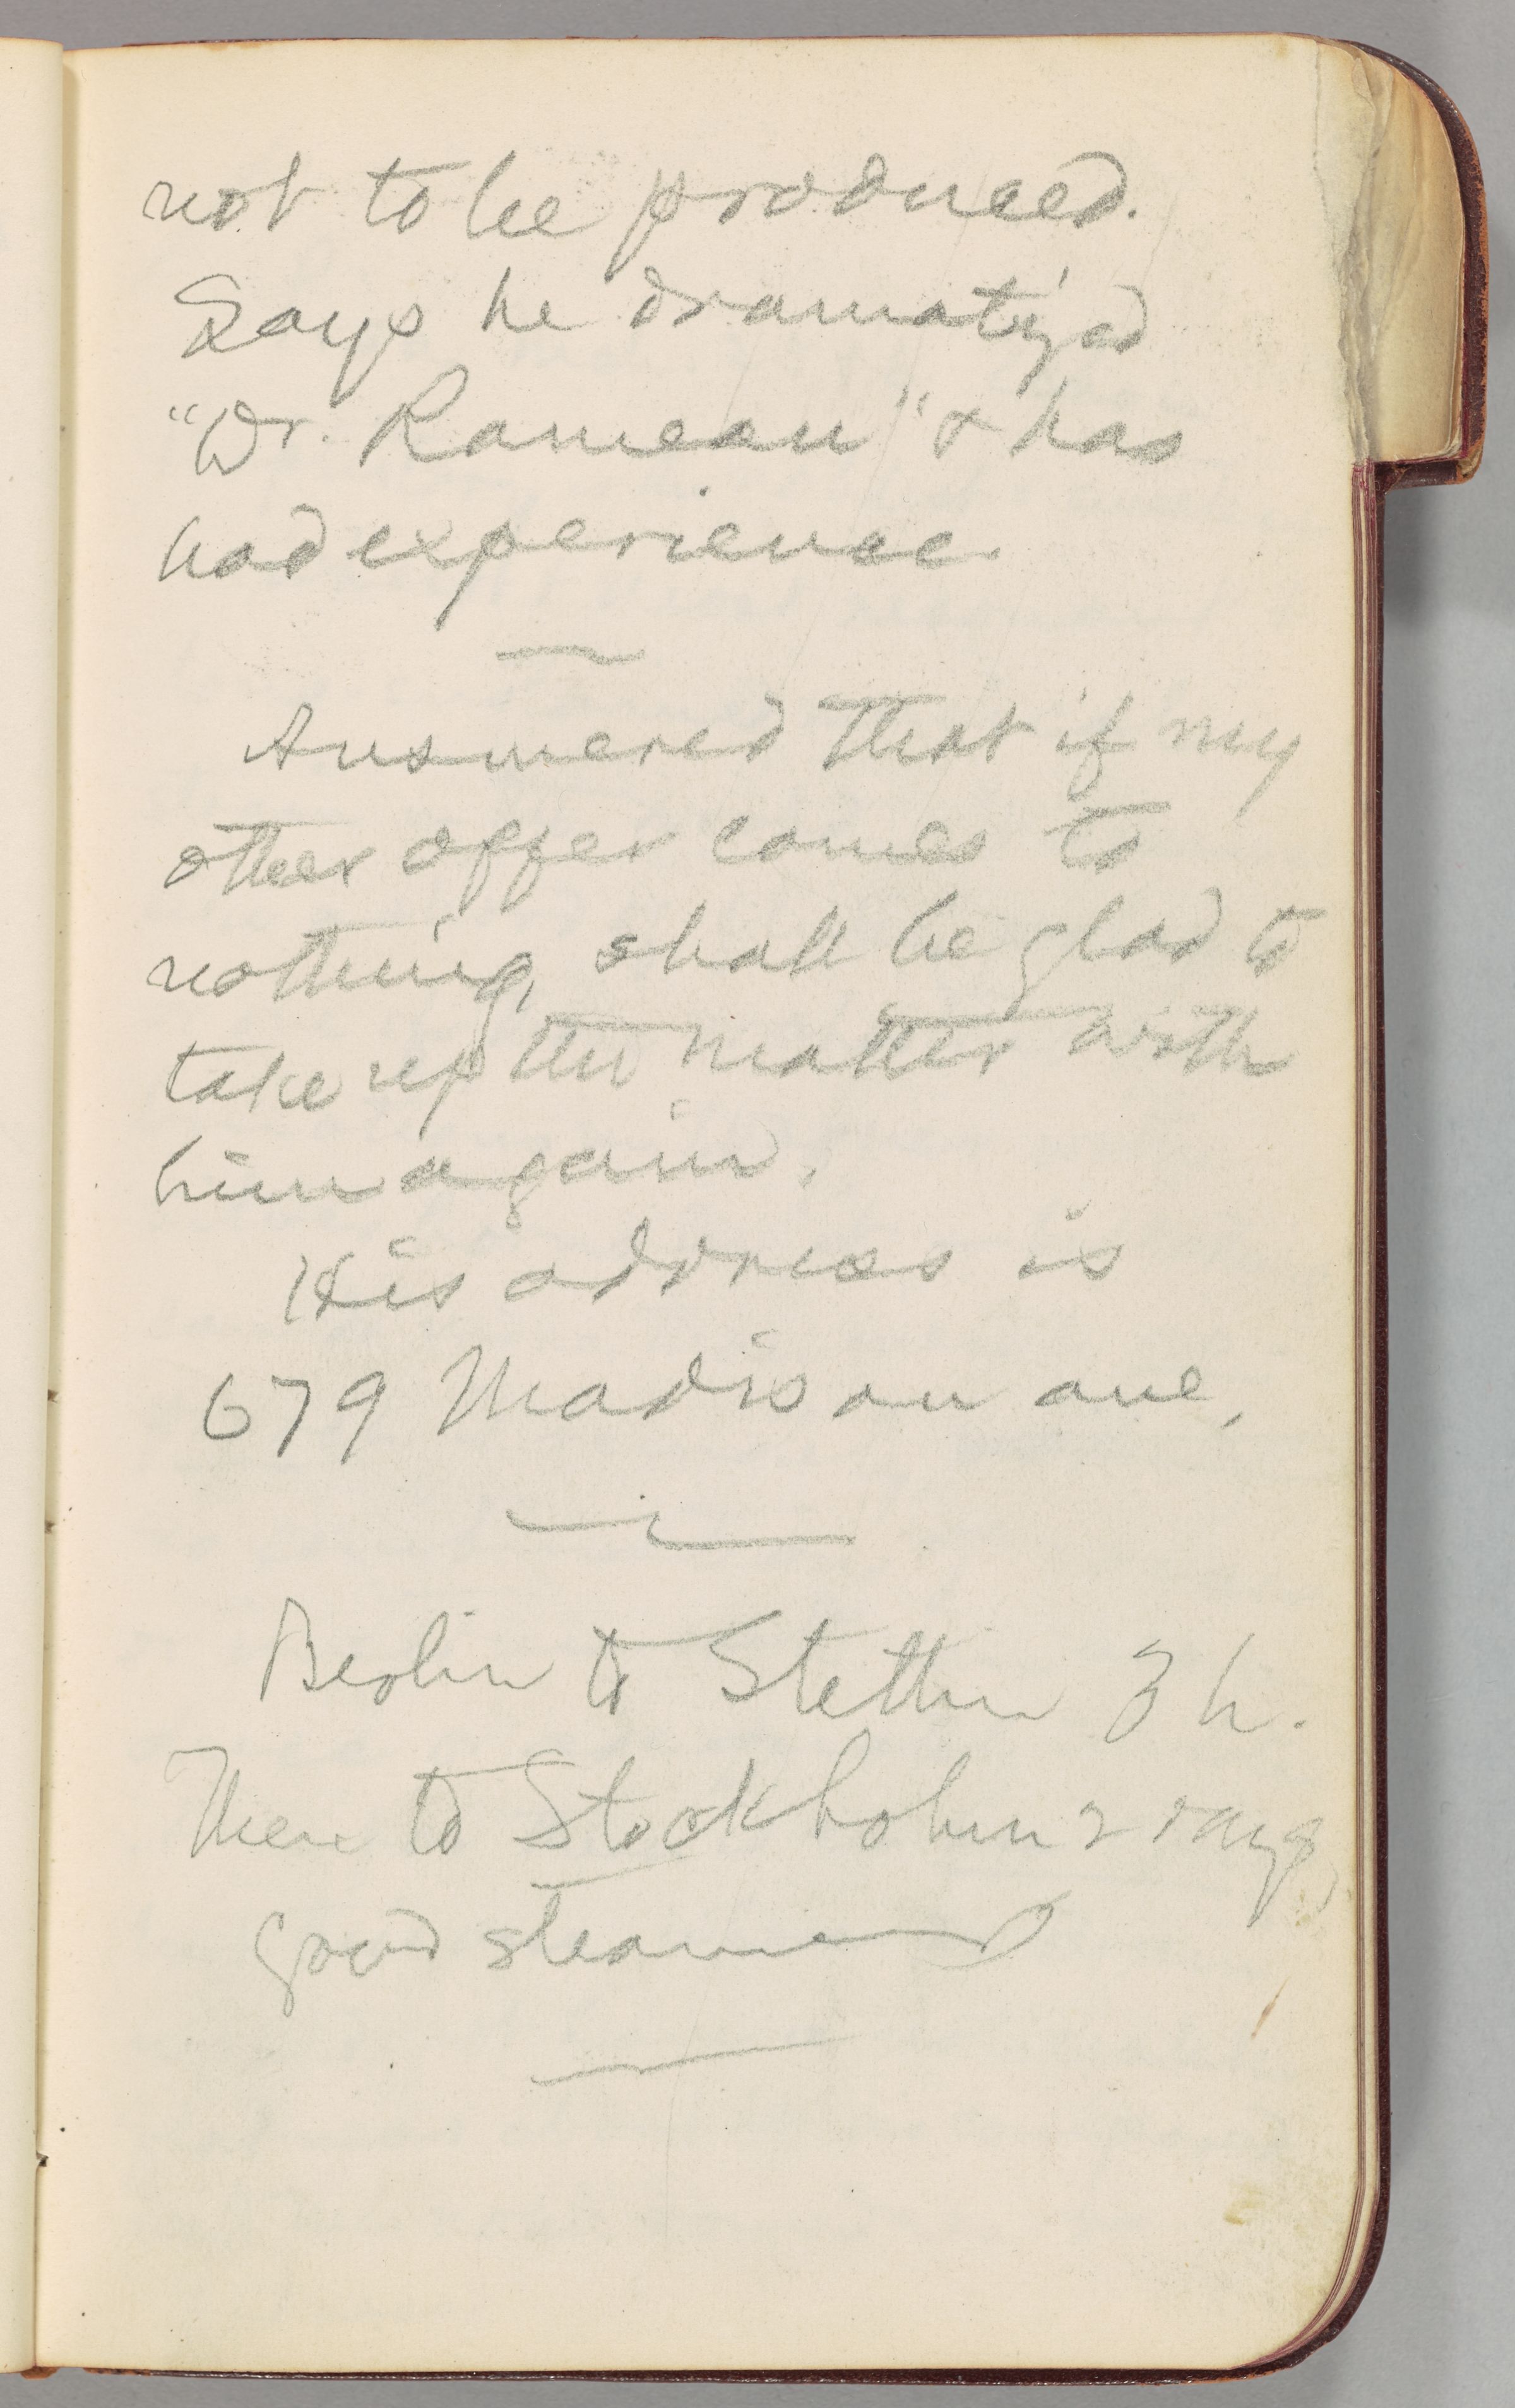 not to be produced.
Says he dramatized
"Dr. Rameau" & has
had experience.
Answered that if my
other offer comes to
nothing, shall be glad to
take up the matter with
him again.
His address is
679 Madison ave,
Berlin to Stettin 3 h.
There to Stockholm 2 days,
good steamer